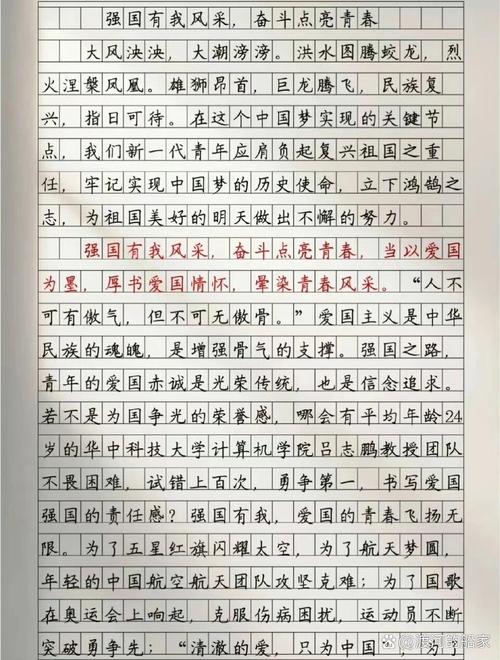 强国有我风采，奋斗点亮青春
大风泱泱，大潮滂滂。洪水图腾蛟龙，烈
火涅槃凤凰。雄狮昂首，巨龙腾飞，民族复
兴，指日可待。在这个中国梦实现的关键节
点，我们新一代青年应肩负起复兴祖国之重
任，牢记实现中国梦的历史使命，立下鸿鹄之
志，为祖国美好的明天做出不懈的努力。
强国有我风采，奋斗点亮青春，当以爱国
为墨，厚书爱国情怀，晕染青春风采。“人不
可有傲气，但不可无傲骨。”爱国主义是中华
民族的魂魄，是增强骨气的支撑。强国之路，
青年的爱国赤诚是光荣传统，也是信念追求。
若不是为国争光的荣誉感，哪会有平均年龄24
岁的华中科技大学计算机学院吕志鹏教授团队
不畏困难，试错上百次，勇争第一，书写爱国
强国的责任感？强国有我，爱国的青春飞扬无
限。为了五星红旗闪耀太空，为了航天梦圆，
年轻的中国航空航天团队攻坚克难；为了国歌
在奥运会上响起，克服伤病困扰，运动员不断
突破勇争先；“清澈的爱，只为中国